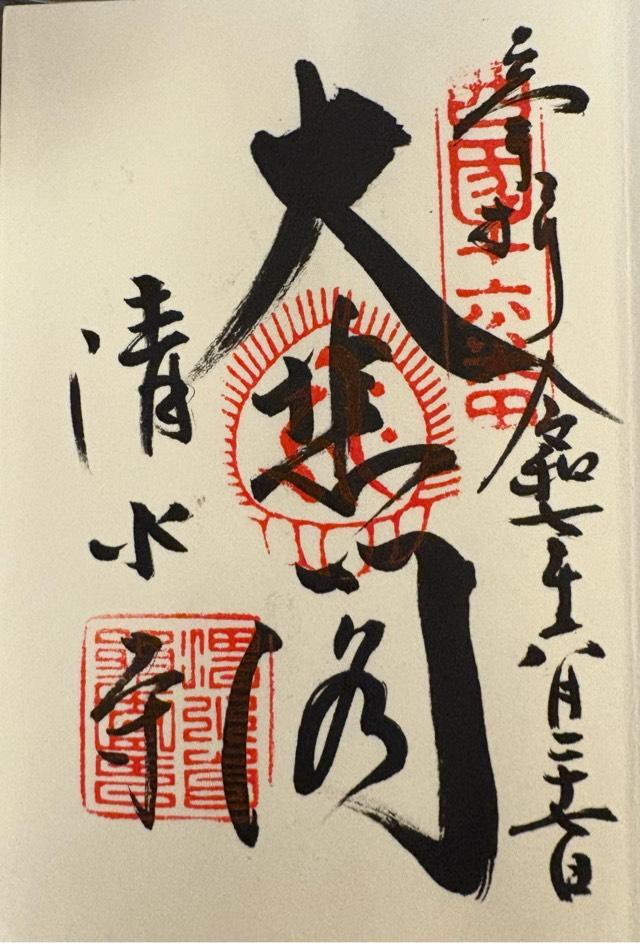 奉拝
西國十六番
令和七年八月二十七日
大悲閣
清水寺